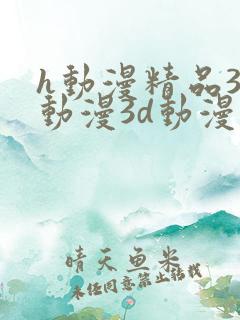 h動漫精品3
動漫3d動漫
晴天魚米
未任同意禁止转载